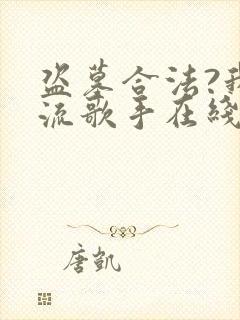 盗墓合法?我
流歌手在线
唐凯